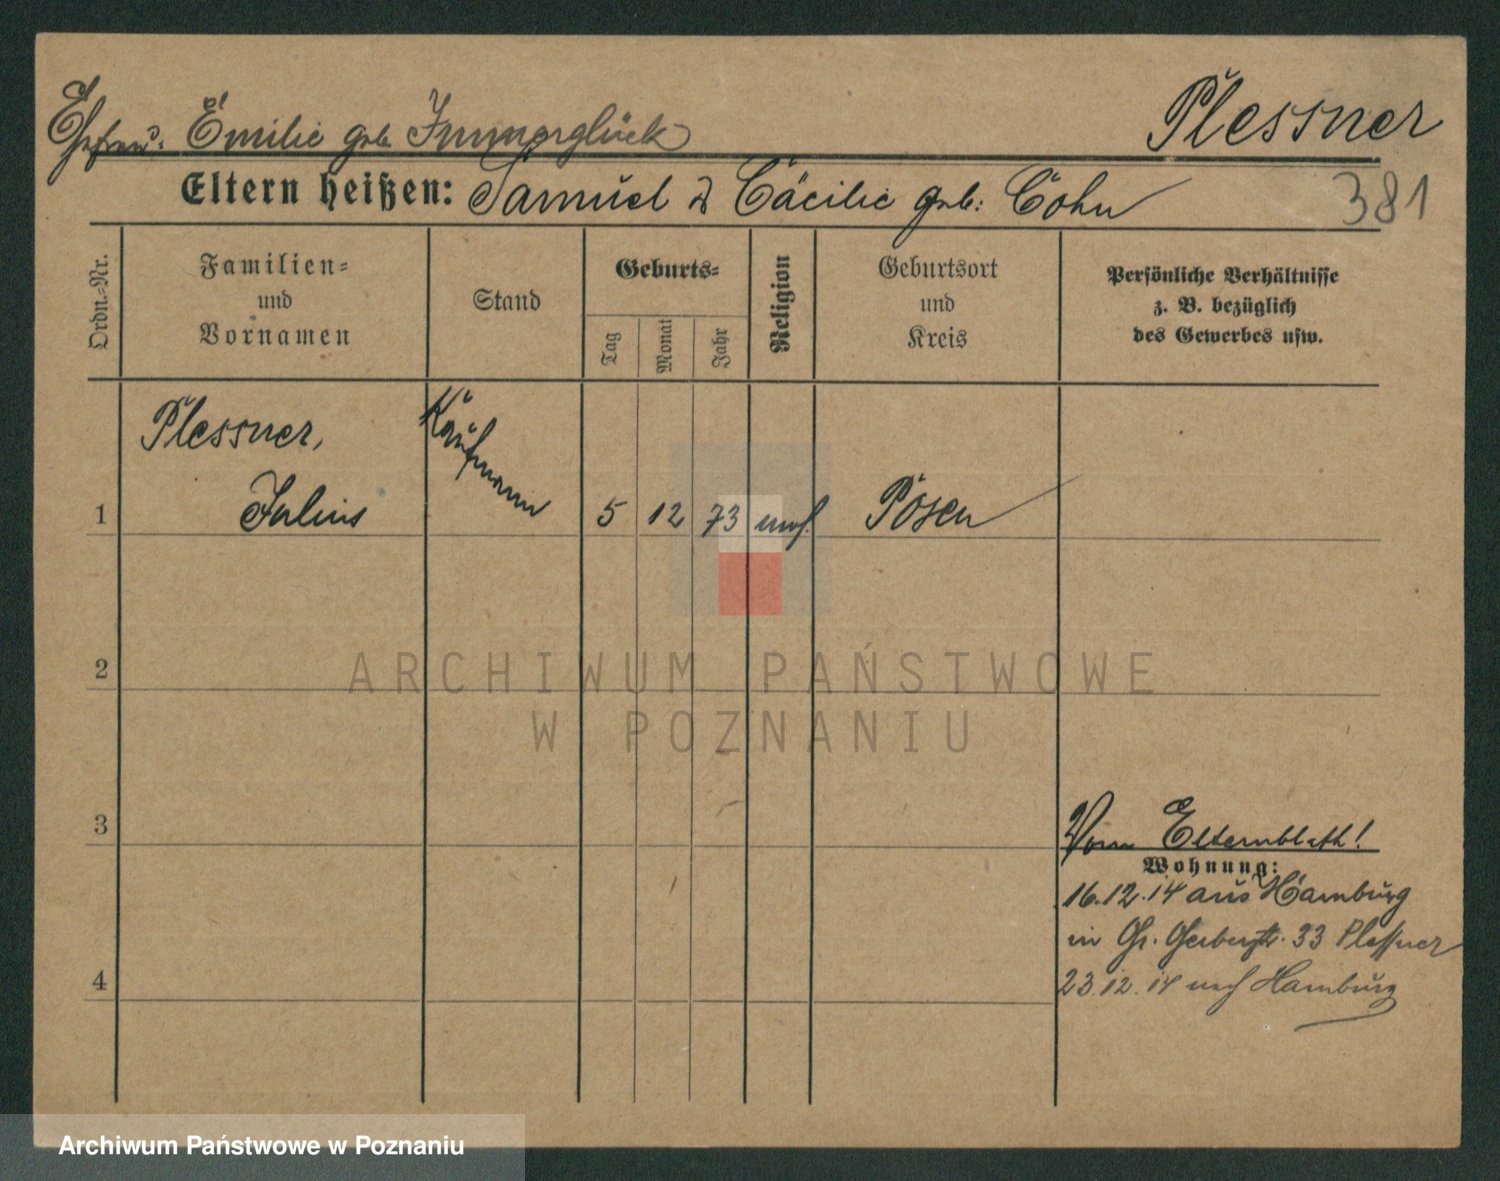 Plessner
Ehefrau: Emilie geb. Immerglück
Eltern heißen: Samuel & Cäcilie geb: Cohn
381
Ordn.-Nr.
Familien-
und
Vornamen
Stand
Geburts-
Tag
Monat
Jahr
Religion
Geburtsort
und
Kreis
Persönliche Verhältnisse
z. B. bezüglich
des Gewerbes usw.
Plessner,
Kaufmann
1 Julius 5 12 73 mos. Posen
2
ARCHIWUM PAŃSTWOWE
W POZNANIU
3
Vom Elternblatt!
Wohnung:
16.12.14 aus Hamburg
in Gr. Gerberstr. 33 Plessner
23.12.14 nach Hamburg
4
Archiwum Państwowe w Poznaniu